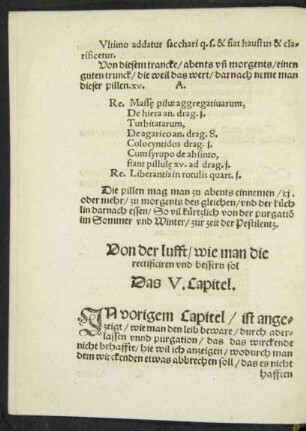 Vltimo addatur sacchari q. s. & fiat haustus & cla-
rificetur.
Von diesem trancke / abents vñ morgents / einen
guten trunck / die weil das wert / darnach neme man
dieser pillen. xv. A.
Re. Massę pilur aggregatiuarum,
De hiera an. drag. j.
Turbitatarum,
De agarico an. drag. S.
Colocyntidos drag. j.
Cum syrupo de absinto,
fiant pillulę xv. ad drag. j.
Re. Liberantis in rotulis quart. j.
Die pillen mag man zu abents einnemen / vj
oder mehr / zu morgents des gleichen / vnd der küch
lin darnach essen / So vil kürtzlich von der purgatiō
in Sommer vnd Winter / zur zeit der Pestilentz.
Von der lufft / wie man die
rectificiren vnd bessern sol
Das V. Capitel.
IN vorigem Capitel / ist ange-
zeigt / wie man den leib beware / durch ader-
lassen vnnd purgation / das das wirckende
nicht behaffte / hie wil ich anzeigen / wodurch man
dem wirckenden etwas abbrechen soll / das es nicht
hafften